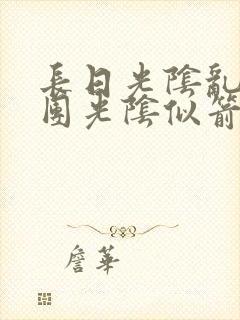 長日光陰亂
團光陰似箭
詹華